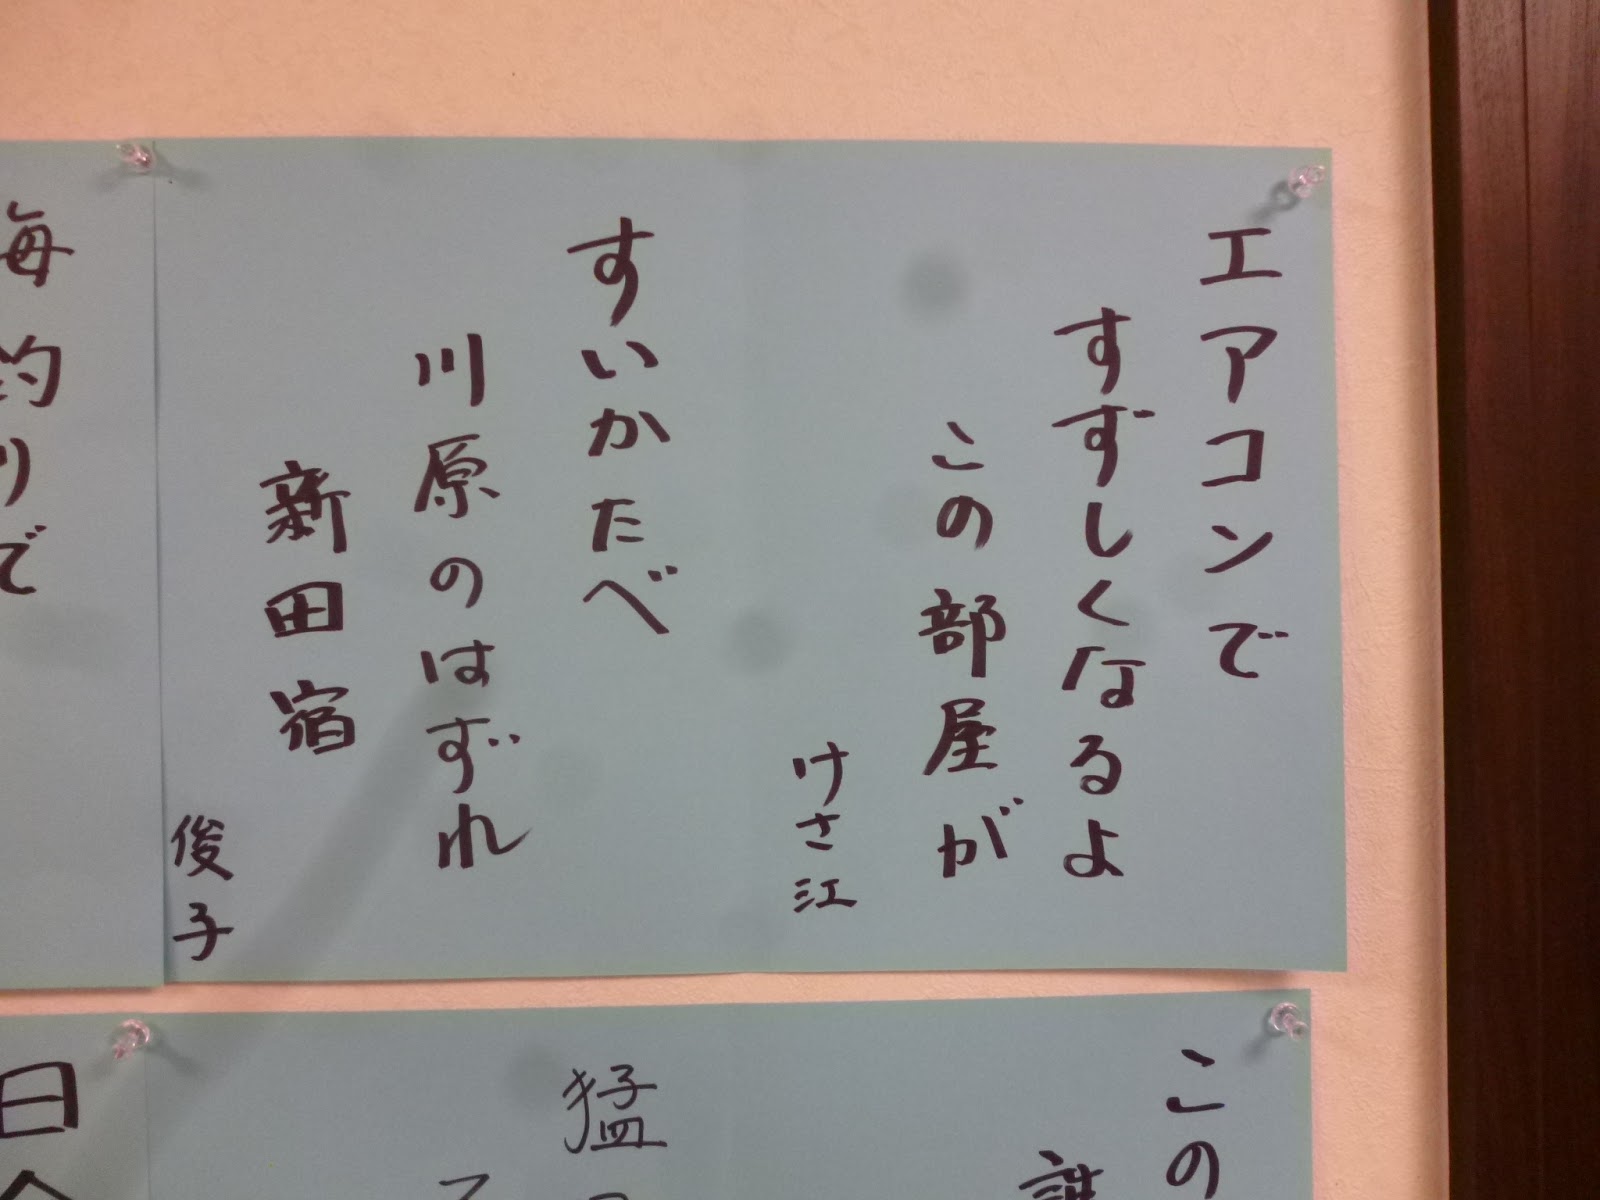 エアコンで
すずしくなるよ
この部屋が
けさ江
すいかたべ
川原のはずれ
新田宿
俊子
海釣りで
この
猛
日